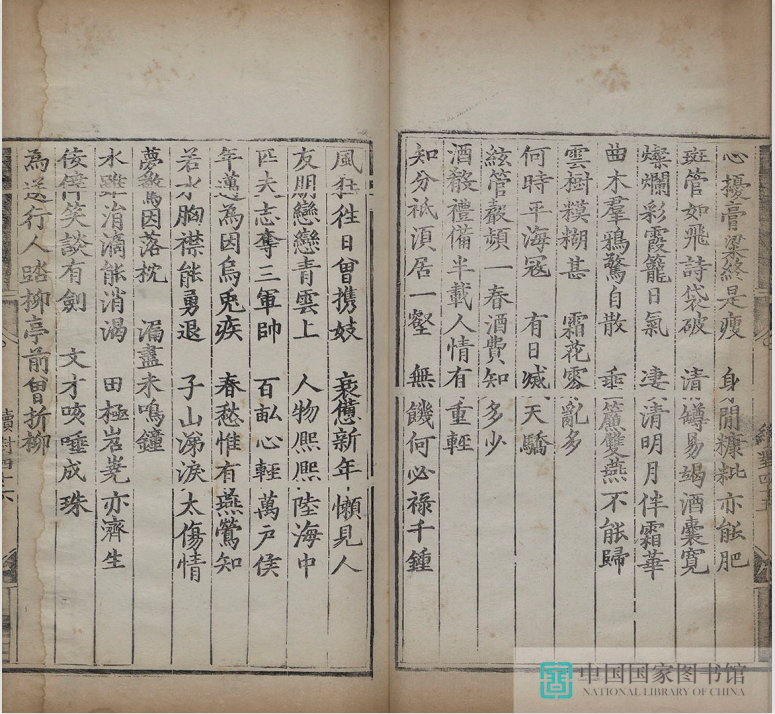 心擾膏粱終是瘦　身閒糠粃亦能肥
斑管如飛詩袋破　清罇易竭酒囊寬
燦爛彩霞籠日氣　淒清明月伴霜華
曲木羣鴉驚自散　垂簾雙燕不能歸
雲樹糢糊甚　霜花零亂多
何時平海寇　有日滅天驕
絃管聲頻一春酒費知多少
酒殽禮備半載人情有重輕
知分祗湏居一壑　無饑何必祿千鍾
風狂徃日曾攜妓　衰憊新年懶見人
友朋戀戀青雲上　人物熙熙陸海中
匹夫志奪三軍帥　百畝心輕萬戶侯
年邁為因烏兎疾　春愁惟有燕鶯知
若水胸襟能勇退　子山涕淚太傷情
夢驚因落枕　漏盡未鳴鐘
水雖涓滴能消渴　田極岧嶤亦濟生
侫倖笑談有劍　文才咳唾成珠
為送行人踏柳亭前曾折柳
續對四十五
續對四十六
中国国家图书馆
NATIONAL LIBRARY OF CHINA